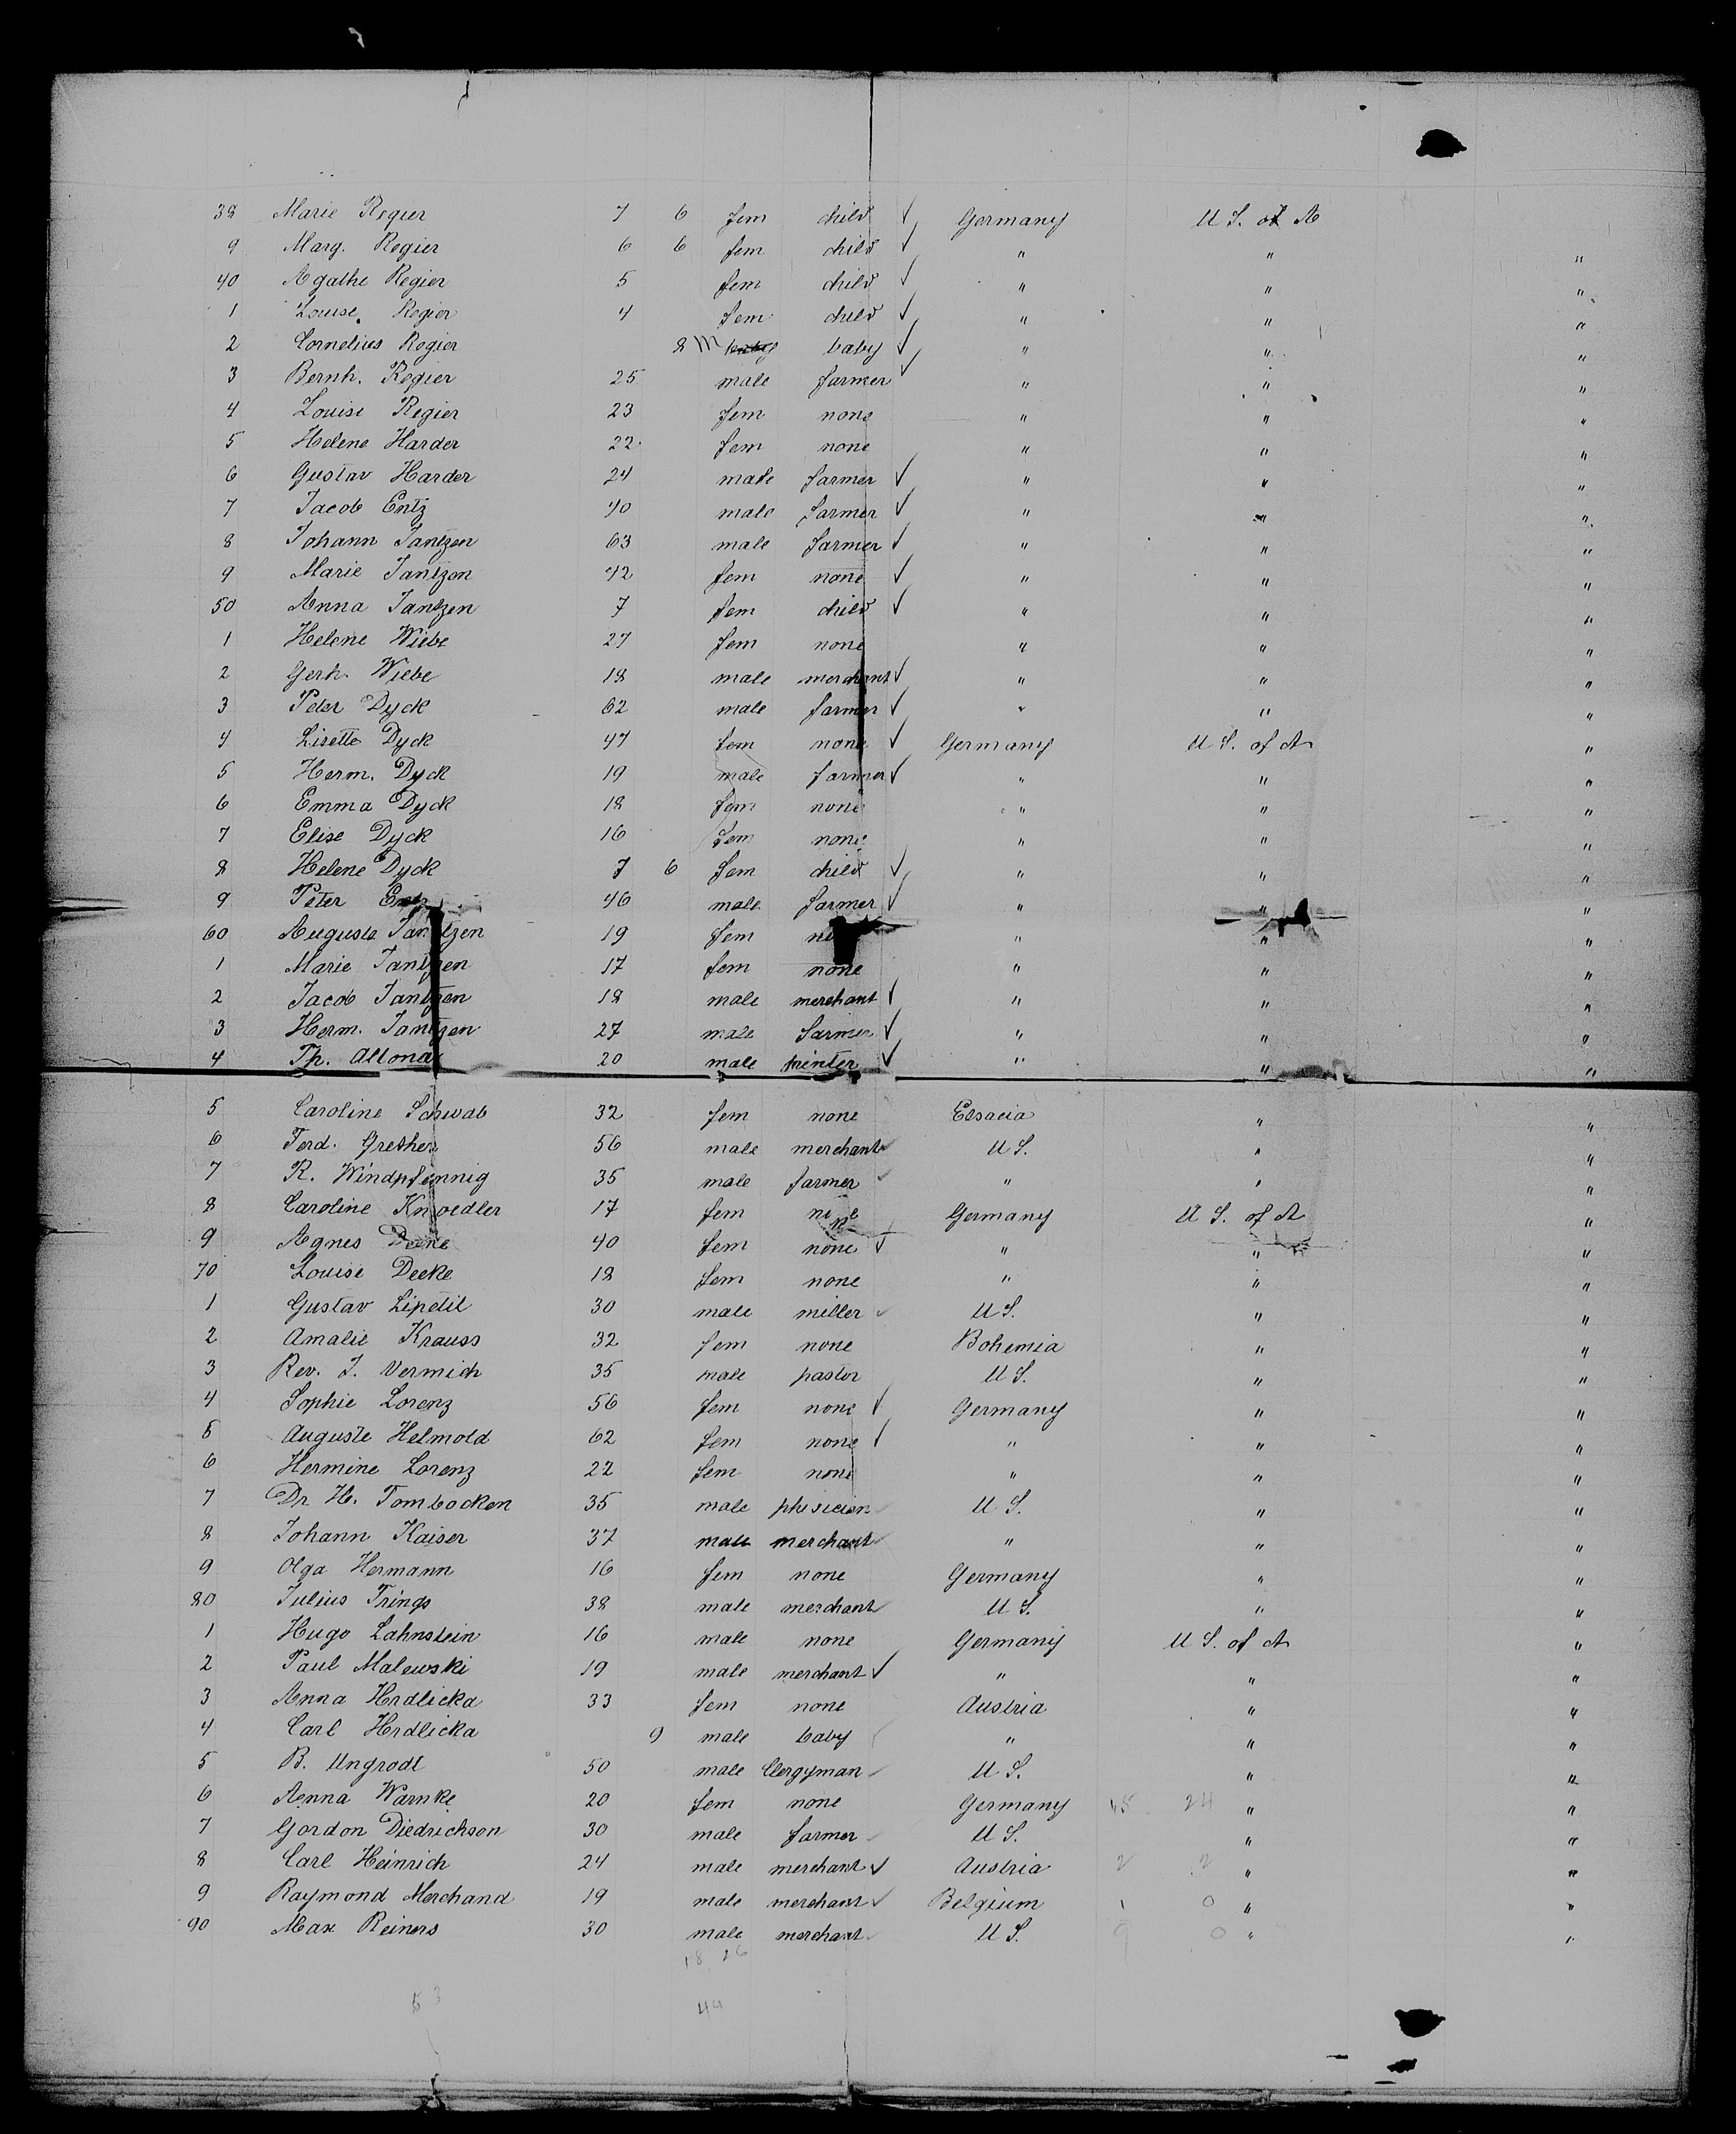 38 Marie Regier 7 6 fem child ✓ Germany U S. of A
9 Marg. Regier 6 6 fem child ✓ " " "
40 Agathe Regier 5 fem child ✓ " " "
1 Louise Regier 4 fem child ✓ " " "
2 Cornelius Regier 8 m baby ✓ " " "
3 Bernh. Regier 25 male farmer ✓ " " "
4 Louise Regier 23 fem none " " "
5 Helene Harder 22 fem none " " "
6 Gustav Harder 24 male farmer ✓ " " "
7 Jacob Entz 40 male farmer ✓ " " "
8 Johann Jantzen 63 male farmer ✓ " " "
9 Marie Jantzen 42 fem none ✓ " " "
50 Anna Jantzen 7 fem child ✓ " " "
1 Helene Wiebe 27 fem none " " "
2 Gerh. Wiebe 18 male merchant ✓ " " "
3 Peter Dyck 62 male farmer ✓ " " "
4 Lisette Dyck 47 fem none ✓ Germany U S. of A "
5 Herm. Dyck 19 male farmer ✓ " " "
6 Emma Dyck 18 fem none " " "
7 Elise Dyck 16 fem none " " "
8 Helene Dyck 7 6 fem child ✓ " " "
9 Peter 46 male farmer ✓ " " "
60 Auguste Jantzen 19 fem " " "
1 Marie Jantzen 17 fem none " " "
2 Jacob Jantzen 18 male merchant ✓ " " "
3 Herm. Jantzen 27 male farmer ✓ " " "
4 Th. Altona 20 male ✓ " " "
5 Caroline Schwab 32 fem none Elsacia " "
6 Ferd. Grether 56 male merchant ✓ U S. " "
7 R. Windpfennig 35 male farmer ✓ " " "
8 Caroline Knoedler 17 fem none Germany U S. of A "
9 Agnes 40 fem none ✓ " " "
70 Louise Deeke 18 fem none " " "
1 Gustav Lipetil 30 male miller ✓ U S. " "
2 Amalie Krauss 32 fem none Bohemia " "
3 Rev. J. Vermich 35 male pastor U S. " "
4 Sophie Lorenz 56 fem none ✓ Germany " "
5 Auguste Helmold 62 fem none ✓ " " "
6 Hermine Lorenz 22 fem none " " "
7 Dr. H. Tombocken 35 male phisician ✓ U S. " "
8 Johann Kaiser 37 male merchant ✓ " " "
9 Olga Hermann 16 fem none Germany " "
80 Julius Trings 38 male merchant ✓ U S. " "
1 Hugo Lahnstein 16 male none Germany U S. of A "
2 Paul Malewski 19 male merchant ✓ " " "
3 Anna Hrdlicka 33 fem none Austria " "
4 Carl Hrdlicka 9 male baby " " "
5 B. Ungrodt 50 male Clergyman ✓ U S. " "
6 Anna Warnke 20 fem none Germany 45 24 " "
7 Gordon Diedrichson 30 male farmer ✓ U S. " "
8 Carl Heinrich 24 male merchant ✓ Austria 2 2 " "
9 Raymond Merchand 19 male merchant ✓ Belgium 1 0 " "
90 Max Reiners 30 male merchant ✓ U S. 9 0 " "
18 26
53 44